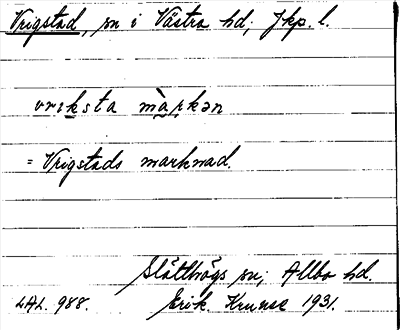 Vrigstad, sn i Västra hd; Jkp. l.
vriksta màrkən
= Vrigstads marknad.
Slätthögs sn; Allbo hd.
LAL. 988. Erik Kruuse 1931.